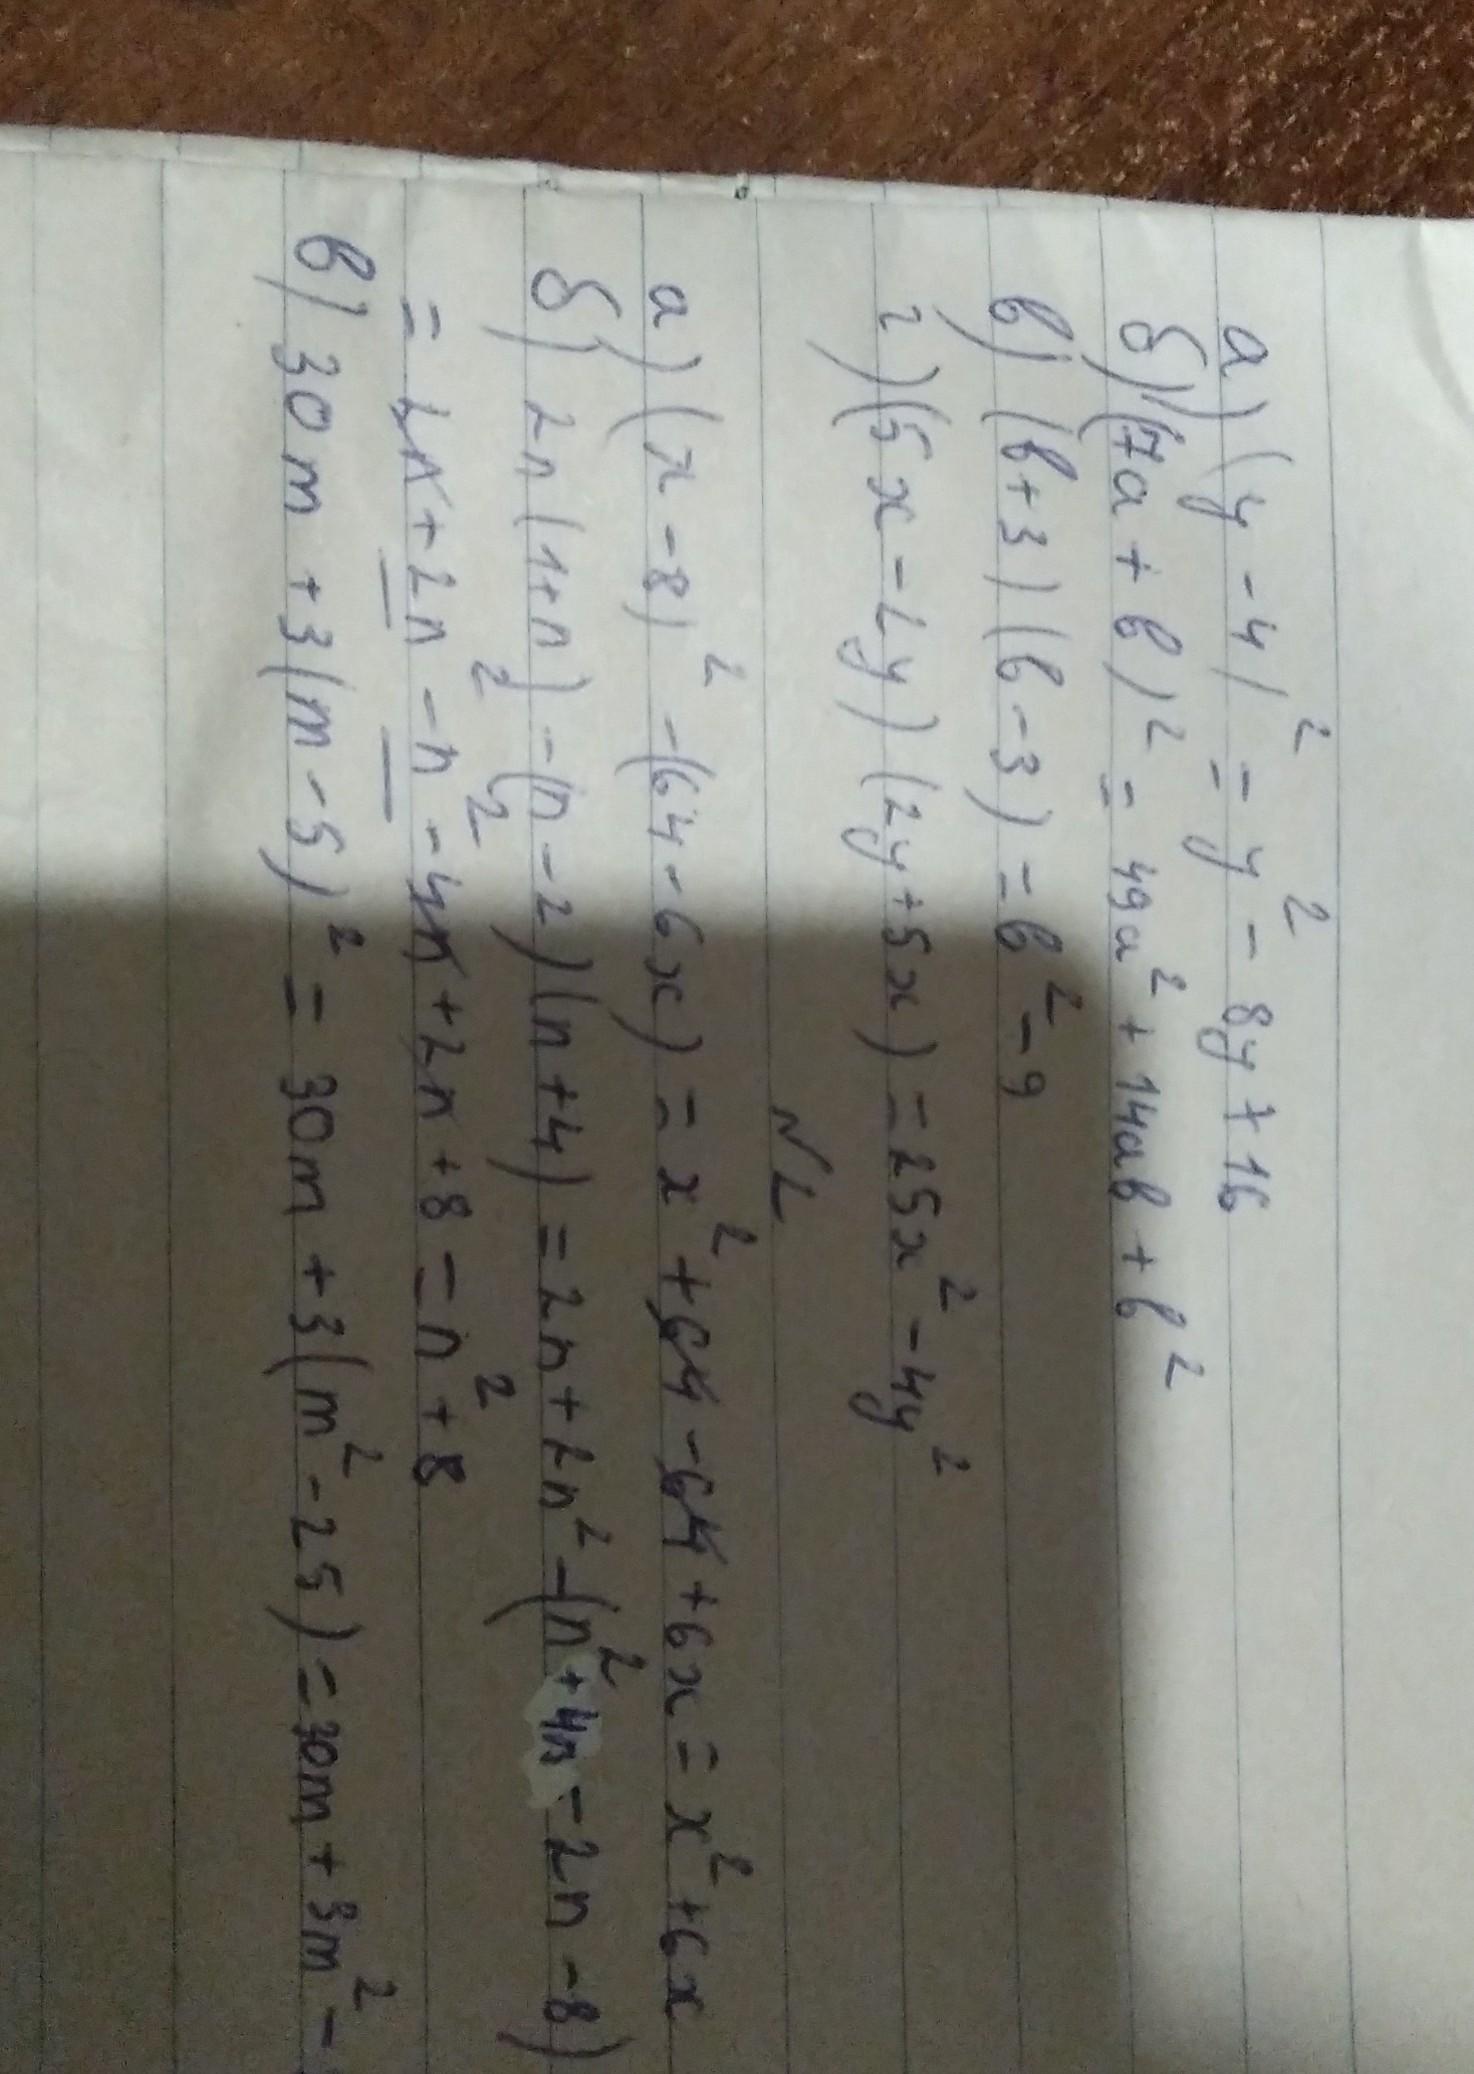 а) (y - 4)² = y² - 8y + 16
б) (7a + b)² = 49a² + 14ab + b²
в) (b + 3)(b - 3) = b² - 9
г) (5x - 2y)(2y + 5x) = 25x² - 4y²
N2
а) (x - 8)² - (64 - 6x) = x² + 64 - 64 + 6x = x² + 6x
б) 2n(1 + n) - (n - 2)(n + 4) = 2n + 2n² - (n² + 4n - 2n - 8)
= 2n + 2n² - n² - 4n + 2n + 8 = n² + 8
в) 30m + 3(m - 5)² = 30m + 3(m² - 25) = 30m + 3m² -